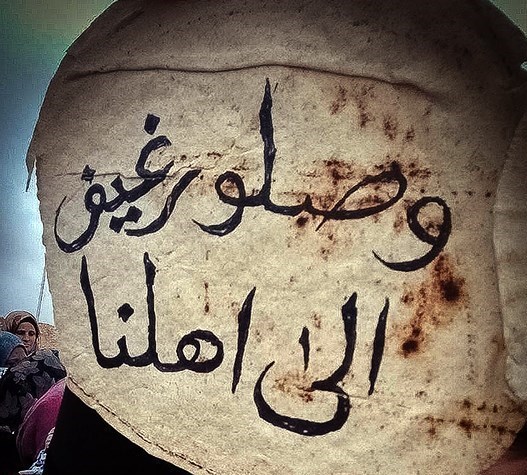 وصلو رغيف
الى اهلنا